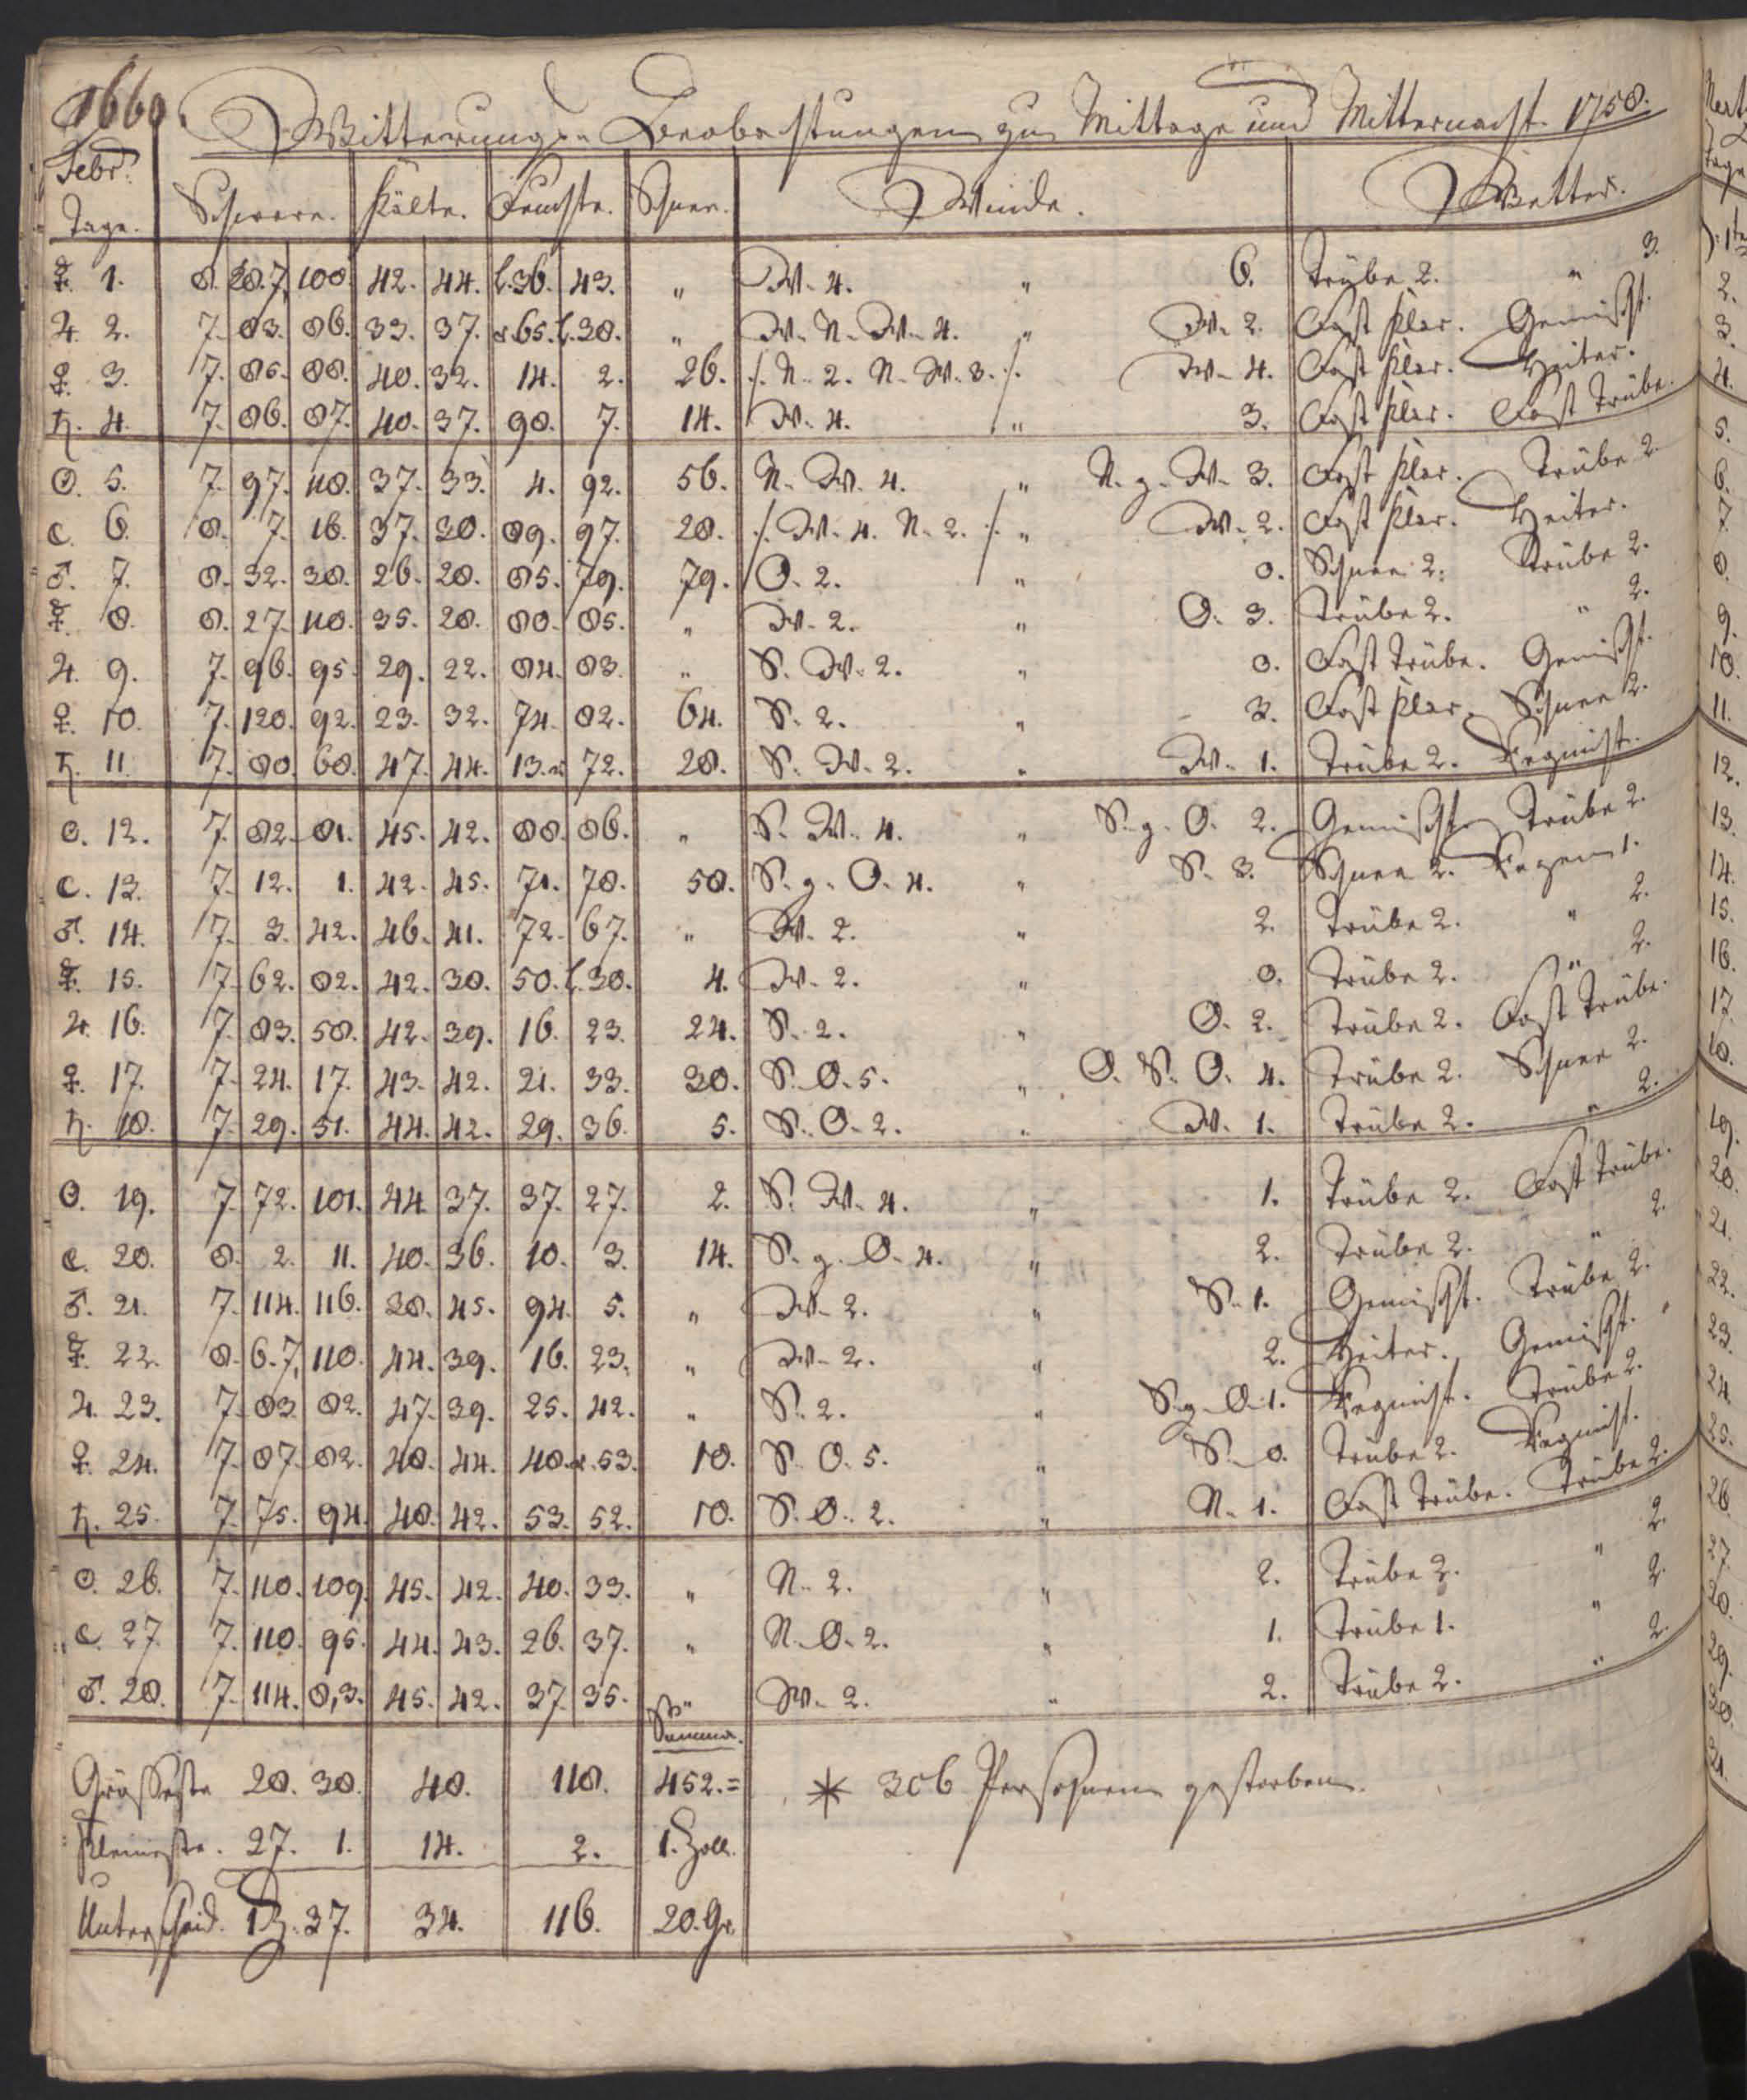 1660.
Witterungs-Beobachtungen zu Mittage und Mitternacht. 1758.
Febr.
Tage. Schwere. Kälte. Feuchte. Schnee. Winde. Wetter.
☿. 1. 8. 28.7. 108. 42. 44. l.36. 43. " W. 4. " 6. Trübe 2. " 3.
♃. 2. 7. 83. 86. 33. 37. r.65. l.38. " W. N. W. 4. " W. 2. Fast klar. Gemischt.
♀. 3. 7. 85. 88. 40. 32. 14. 2. 26. :/. N. 2. N. W. 3. :/. W. 4. Fast klar. Heiter.
♄. 4. 7. 86. 87. 40. 37. 98. 7. 14. W. 4. " 3. Fast klar. Fast Trübe.
☉. 5. 7. 97. 118. 37. 33. 4. 92. 56. N. W. 4. " N. g. W. 3. Fast klar. Trübe 2.
☾. 6. 8. 7. 16. 37. 30. 89. 97. 28. :/. W. 4. N. 2. :/. " W. 2. Fast klar. Heiter.
♂. 7. 8. 32. 38. 26. 28. 85. 79. 79. O. 2. " 0. Schnee 2. Trübe 2.
☿. 8. 8. 27. 118. 35. 28. 80. 85. " W. 2. " O. 3. Trübe 2. " 2.
♃. 9. 7. 96. 95. 29. 22. 84. 83. " S. W. 2. " 0. Fast Trübe. Gemischt.
♀. 10. 7. 120. 92. 23. 32. 74. 82. 64. S. 2. " 3. Fast klar. Schnee 2.
♄. 11. 7. 80. 60. 47. 44. 13. 72. 28. S. W. 2. " W. 1. Trübe 2. Regnicht.
☉. 12. 7. 82. 81. 45. 42. 88. 86. " S. W. 4. " S. g. O. 2. Gemischt. Trübe 2.
☾. 13. 7. 12. 1. 42. 45. 71. 78. 58. S. g. O. 4. " S. 3. Schnee 2. Regen 1.
♂. 14. 7. 3. 42. 46. 41. 72. 67. " W. 2. " 2. Trübe 2. " 2.
☿. 15. 7. 62. 82. 42. 38. 50. l.30. 4. W. 2. " 0. Trübe 2. " 2.
♃. 16. 7. 83. 58. 42. 39. 16. 23. 24. S. 2. " O. 2. Trübe 2. Fast Trübe.
♀. 17. 7. 24. 17. 43. 42. 21. 33. 30. S. O. 5. " O. S. O. 4. Trübe 2. Schnee 2.
♄. 18. 7. 29. 51. 44. 42. 29. 36. 5. S. O. 2. " W. 1. Trübe 2. " 2.
☉. 19. 7. 72. 101. 44. 37. 37. 27. 2. S. W. 4. " 1. Trübe 2. Fast Trübe.
☾. 20. 8. 2. 11. 40. 36. 10. 3. 14. S. g. O. 4. " 2. Trübe 2. " 2.
♂. 21. 7. 114. 116. 38. 45. 94. 5. " W. 2. " S. 1. Gemischt. Trübe 2.
☿. 22. 8. 6.7, 110. 44. 39. 16. 23. " W. 2. " 2. Heiter. Gemischt.
♃. 23. 7. 83. 82. 47. 39. 25. 42. " S. 2. " S. g. O. 1. Regnicht. Trübe 2.
♀. 24. 7. 87. 82. 48. 44. 48. r.53. 10. S. O. 5. " S. 0. Trübe 2. Regnicht.
♄. 25. 7. 75. 94. 48. 42. 53. 52. 10. S. O. 2. " N. 1. Fast Trübe. Trübe 2.
☉. 26. 7. 110. 109. 45. 42. 40. 33. " N. 2. " 2. Trübe 2. " 2.
☾. 27. 7. 110. 95. 44. 43. 26. 37. " N. O. 2. " 1. Trübe 1. " 2.
♂. 28. 7. 114. 8,3. 45. 42. 37. 35. " W. 2. " 2. Trübe 2. " 2.
Summa.
Grösseste 28. 38. 48. 118. 452.= * 306 Persohnen gestorben.
Kleineste. 27. 1. 14. 2. 1. Zoll.
Unterscheid. 1 Z. 37. 34. 116. 20. Gr.